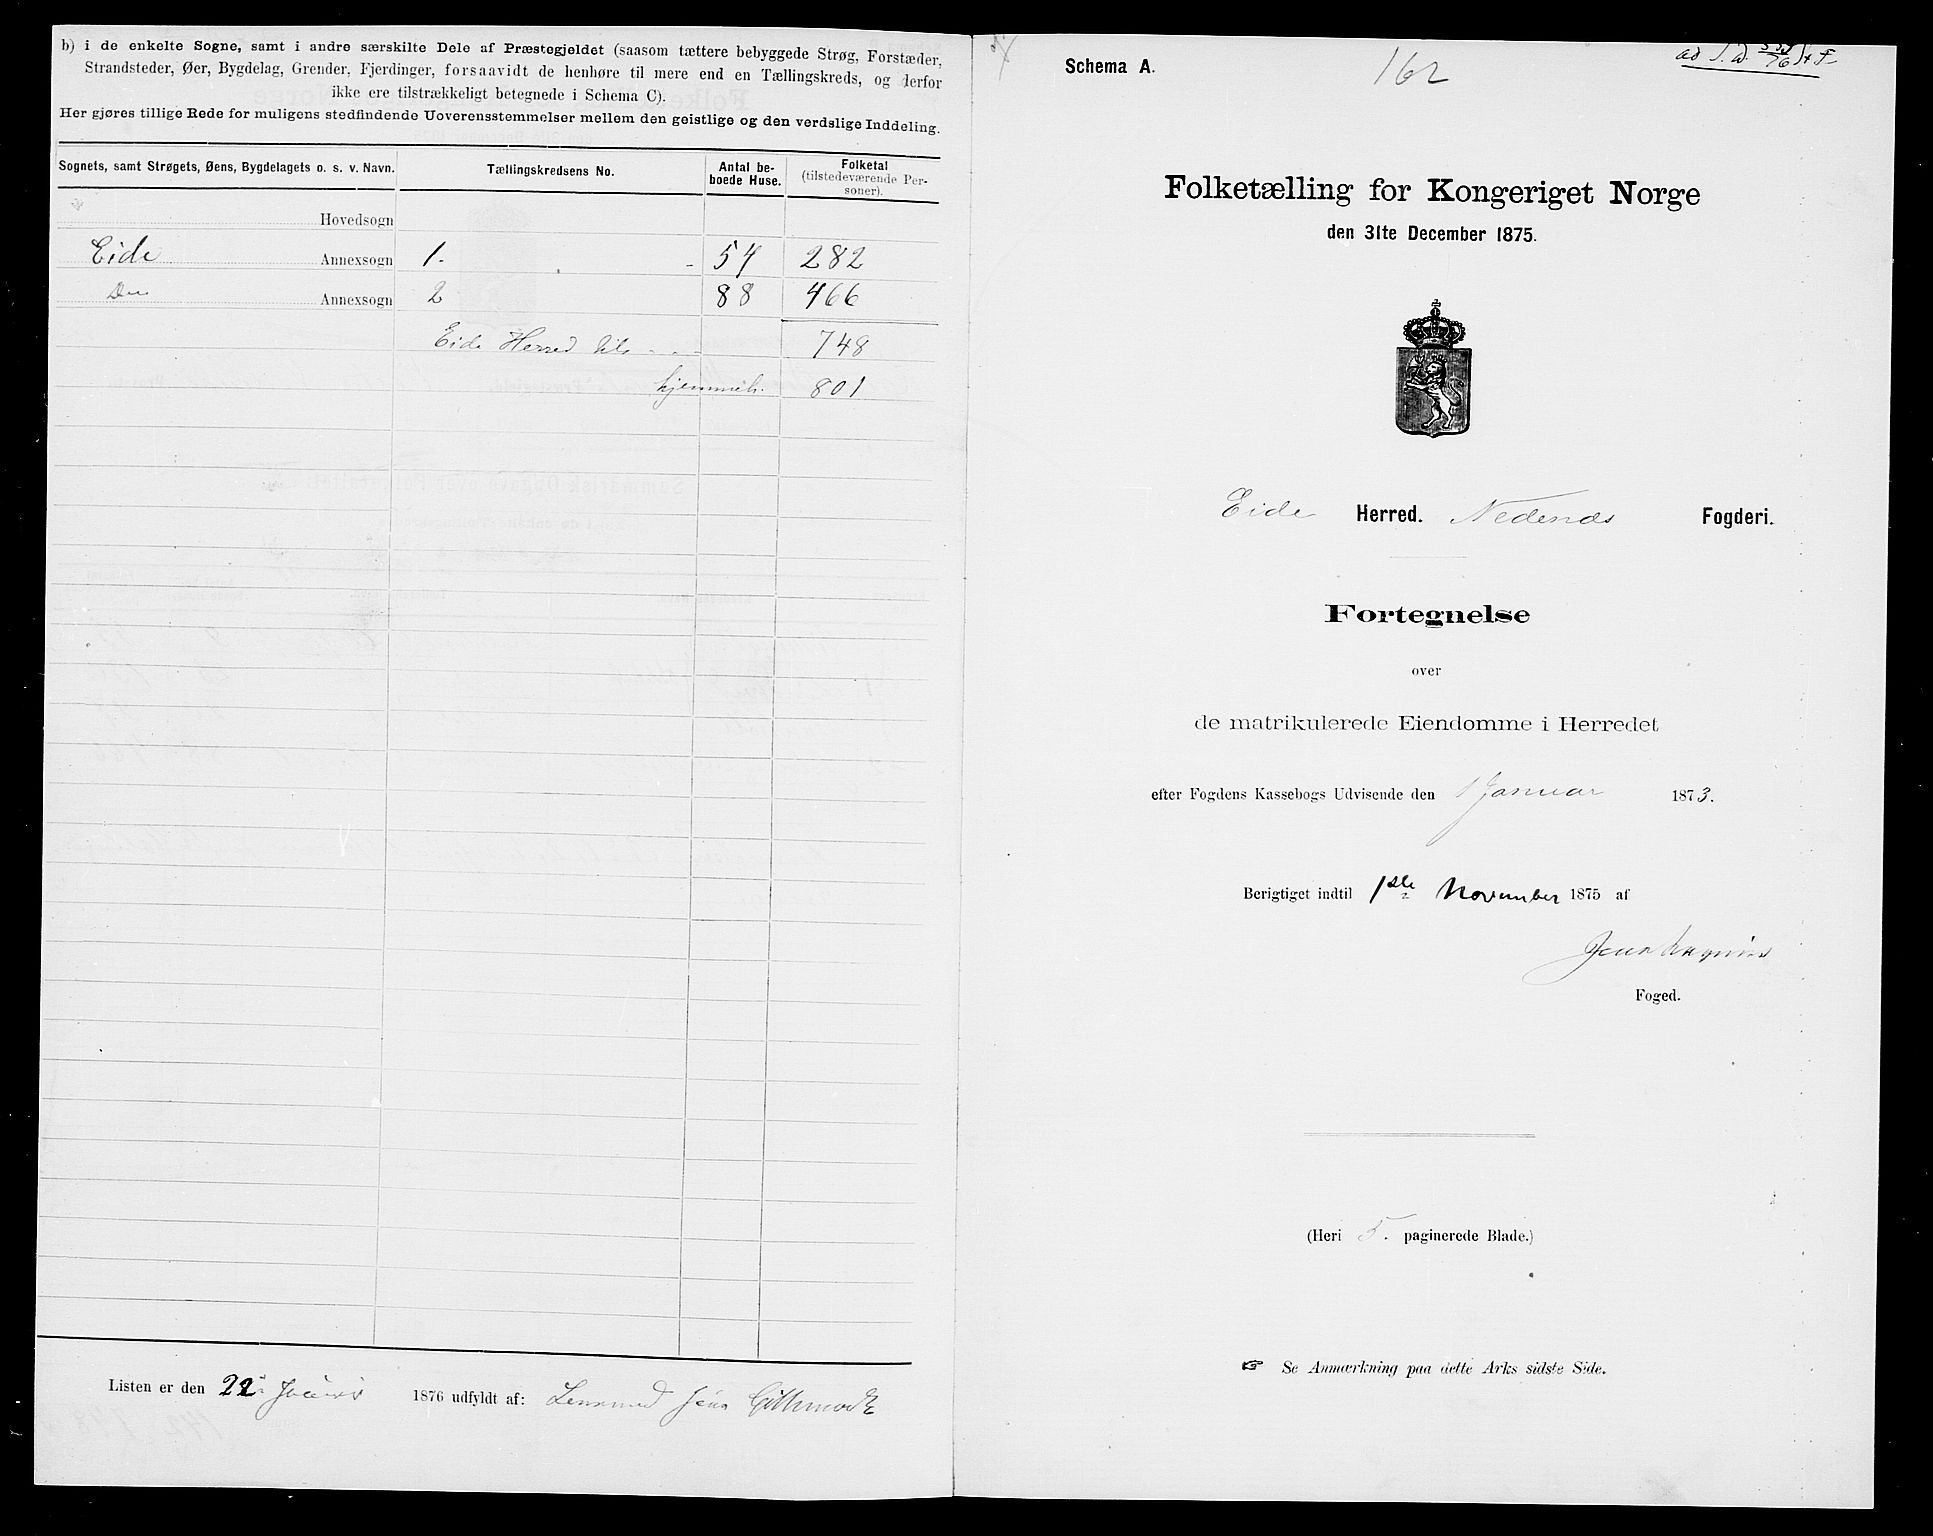 b) i de enkelte Sogne, samt i andre særskilte Dele af Præstegjeldet (saasom tættere bebyggede Strøg, Forstæder,
Strandsteder, Øer, Bygdelag, Grender, Fjerdinger, forsaavidt de henhøre til mere end en Tællingskreds, og derfor
ikke ere tilstrækkeligt betegnede i Schema C).
Her gjøres tillige Rede for muligens stedfindende Uoverensstemmelser mellem den geistlige og den verdslige Inddeling.
Sognets, samt Strøgets, Øens, Bygdelagets o. s. v. Navn. Tællingskredsens No. Antal beboede Huse. Folketal (tilstedeværende Personer).
Hovedsogn
Eide Annexsogn 1. 54 282
Do Annexsogn 2 88 466
Eide Herred tils. 748
hjemmeh. 801
Listen er den 22 Januar 1876 udfyldt af: Lensmand Jens
Schema A.
162
Folketælling for Kongeriget Norge
den 31te December 1875.
Eide Herred. Nedenæs Fogderi.
Fortegnelse
over
de matrikulerede Eiendomme i Herredet
efter Fogdens Kassebogs Udvisende den 1 Januar 1873.
Berigtiget indtil 1ste November 1875 af
Foged.
(Heri 5. paginerede Blade.)
☞ Se Anmærkning paa dette Arks sidste Side.